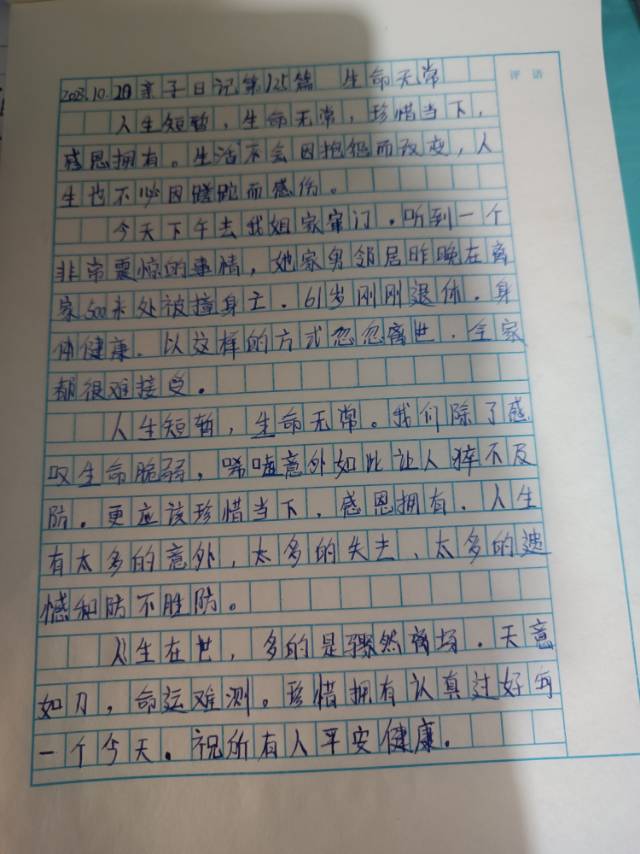 评语
2023.10.20 亲子日记第125篇 生命无常
人生短暂，生命无常，珍惜当下，
感恩拥有。生活不会因抱怨而改变，人
生也不必因蹉跎而感伤。
今天下午去我姐家窜门，听到一个
非常震惊的事情，她家男邻居昨晚在离
家500米处被撞身亡．61岁刚刚退休．身
体健康．以这样的方式忽忽离世．全家
都很难接受。
人生短暂，生命无常。我们除了感
叹生命脆弱，唏嘘意外如此让人猝不及
防．更应该珍惜当下，感恩拥有．人生
有太多的意外，太多的失去、太多的遗
憾和防不胜防。
人生在世，多的是骤然离场．天意
如刀，命运难测。珍惜拥有认真过好每
一个今天．祝所有人平安健康．